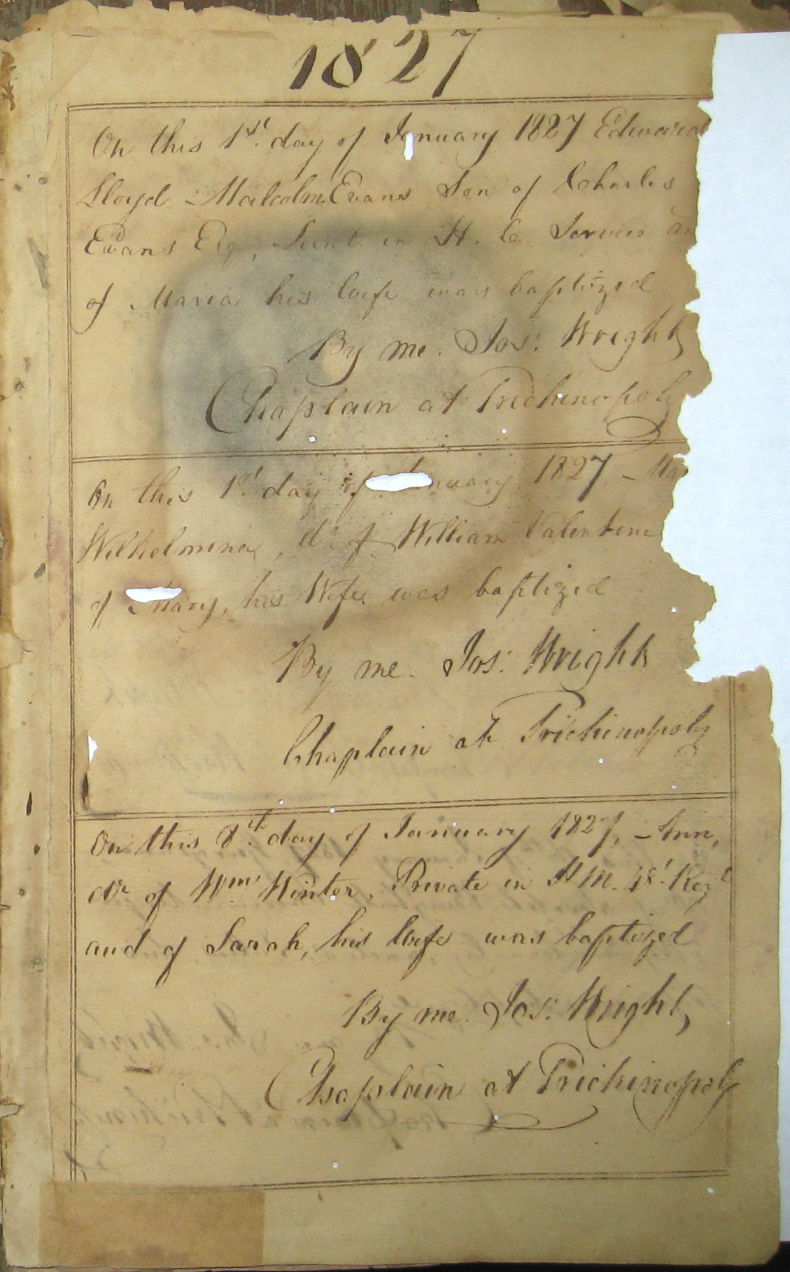 1827
On this 1st. day of January 1827 Edward
Lloyd Malcolm Evans Son of Charles
Evans Esq, Lieut. in H. C. Service an
of Maria his Wife was baptized
By me. Jos: Wright
Chaplain at Trichinopoly
On this 1st day of January 1827, Mar
Wilhelmina, dr. of William Valentine
of Mary, his Wife was baptized
By me. Jos: Wright
Chaplain at Trichinopoly
On this 8th day of January 1827, Ann,
dr. of Wm. Winter. Private in H. M. 48t. Regt
and of Sarah, his Wife was baptized
By me. Jos: Wright
Chaplain at Trichinopoly